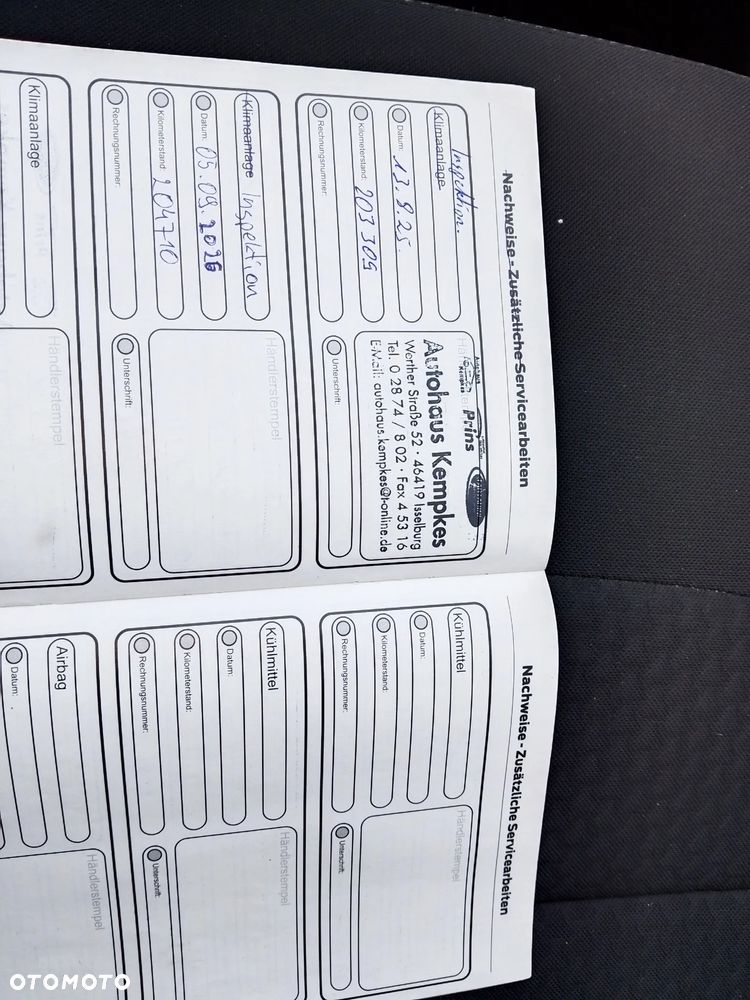 Nachweise - Zusätzliche Servicearbeiten
Inspektion.
Klimaanlage
Datum: 13.9.25.
Kilometerstand: 203309
Rechnungsnummer:
Prins
Autohaus Kempkes
Werther Straße 52 · 46419 Isselburg
Tel. 0 28 74 / 8 02 · Fax 4 53 16
E-Mail: autohaus.kempkes@t-online.de
Unterschrift:
Klimaanlage Inspektion
Datum: 05.09.2026
Kilometerstand: 204710
Rechnungsnummer:
Händlerstempel
Unterschrift:
Klimaanlage
Händlerstempel
Nachweise - Zusätzliche Servicearbeiten
Kühlmittel
Datum:
Kilometerstand:
Rechnungsnummer:
Händlerstempel
Unterschrift:
Kühlmittel
Datum:
Kilometerstand:
Rechnungsnummer:
Händlerstempel
Unterschrift:
Airbag
Datum:
Händlerstempel
OTOMOTO